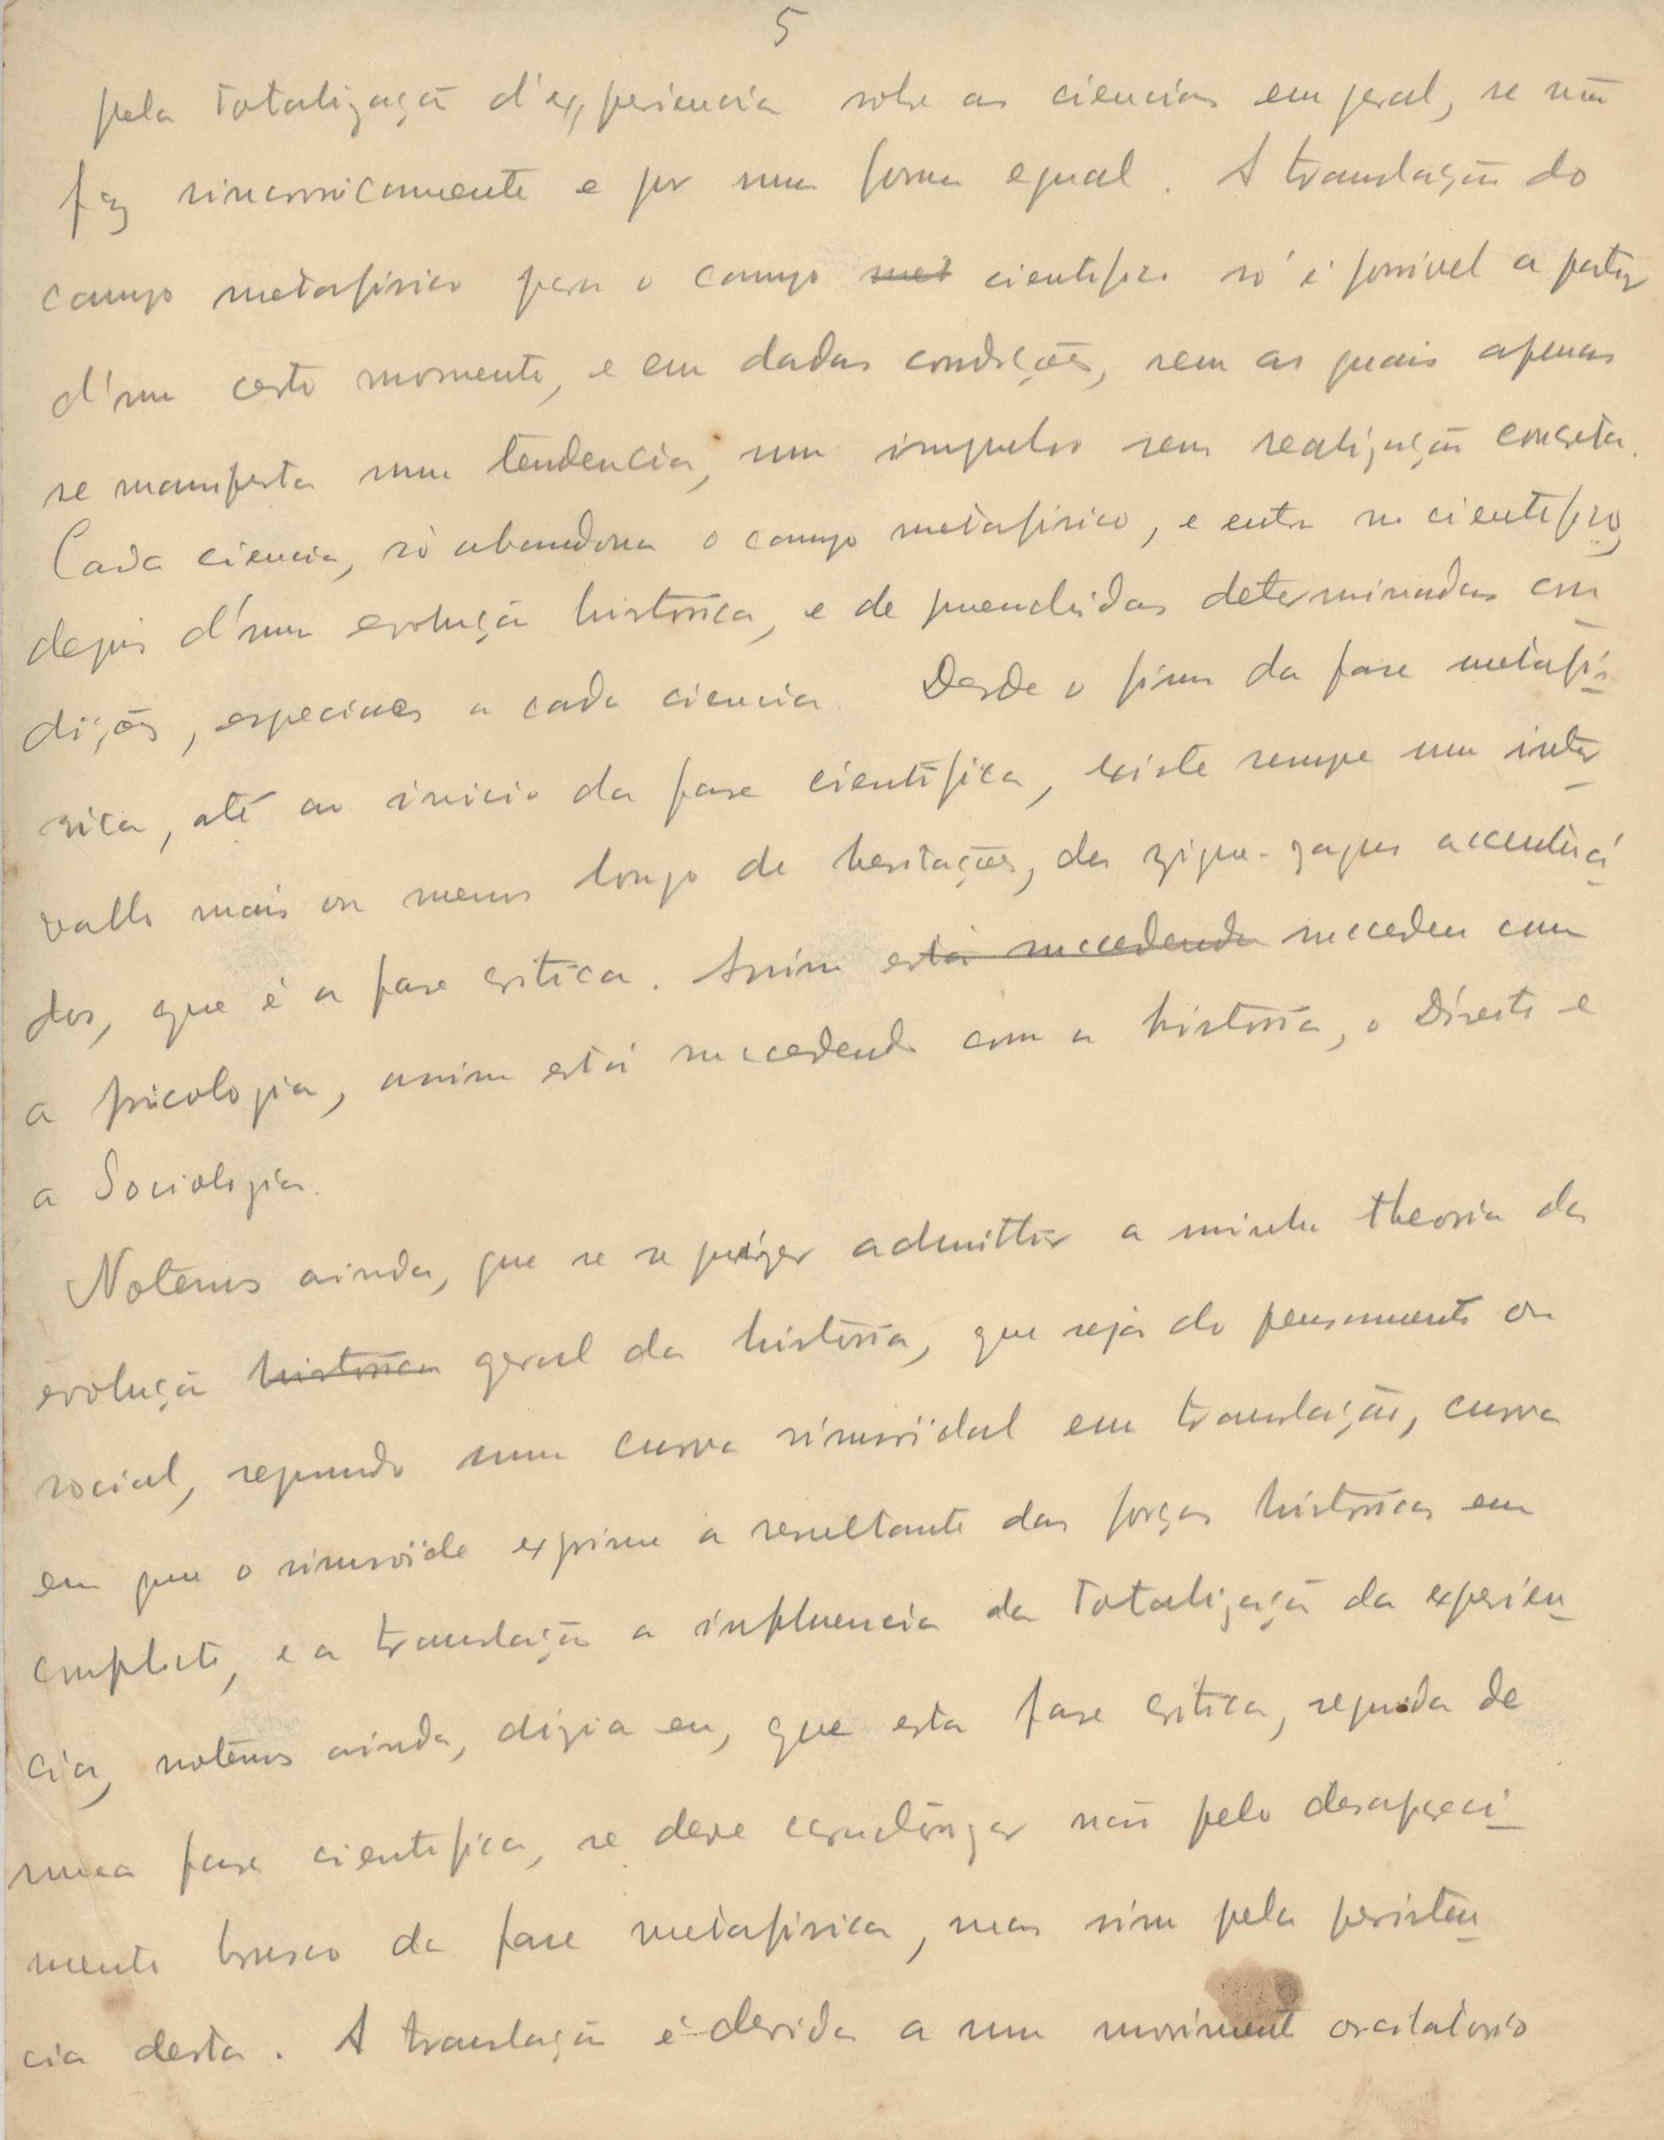 5
pela totalização d'experiencia sobre as ciencias em geral, se não
faz sincronicamente e por uma forma egual. A translação do
campo metafisico para o campo met cientifico só é possivel a partir
d'um certo momento, e em dadas condições, sem as quais apenas
se manifesta uma tendencia, um impulso sem realização concreta.
Cada ciencia, só abandona o campo metafisico, e entra no cientifico,
depois d'uma evolução historica, e de preenchidas determinadas con
dições, especiaes a cada ciencia. Desde o fim da fase metafi-
sica, até ao inicio da fase cientifica, existe sempre um inter
vallo mais ou menos longo de hesitações, de zigue-zagues accentua
dos, que é a fase critica. Assim está succedendo succedeu com
a psicologia, assim está succedendo com a historia, o Direito e
a Sociologia.
Notemos ainda, que se se quizer admittir a minha theoria da
evolução historica geral da historia, quer seja do pensamento ou
social, segundo uma curva sinusoidal em translação, curva
em que o sinusoide exprime a resultante das forças historicas em
conflicto, e a translação a influencia da totalização da experien
cia, notemos ainda, dizia eu, que esta fase critica, seguida de
uma fase cientifica, se deve caracterizar não pelo desapareci
mento brusco da fase metafisica, mas sim pela persisten
cia desta. A translação é devida a um movimento oscilatorio